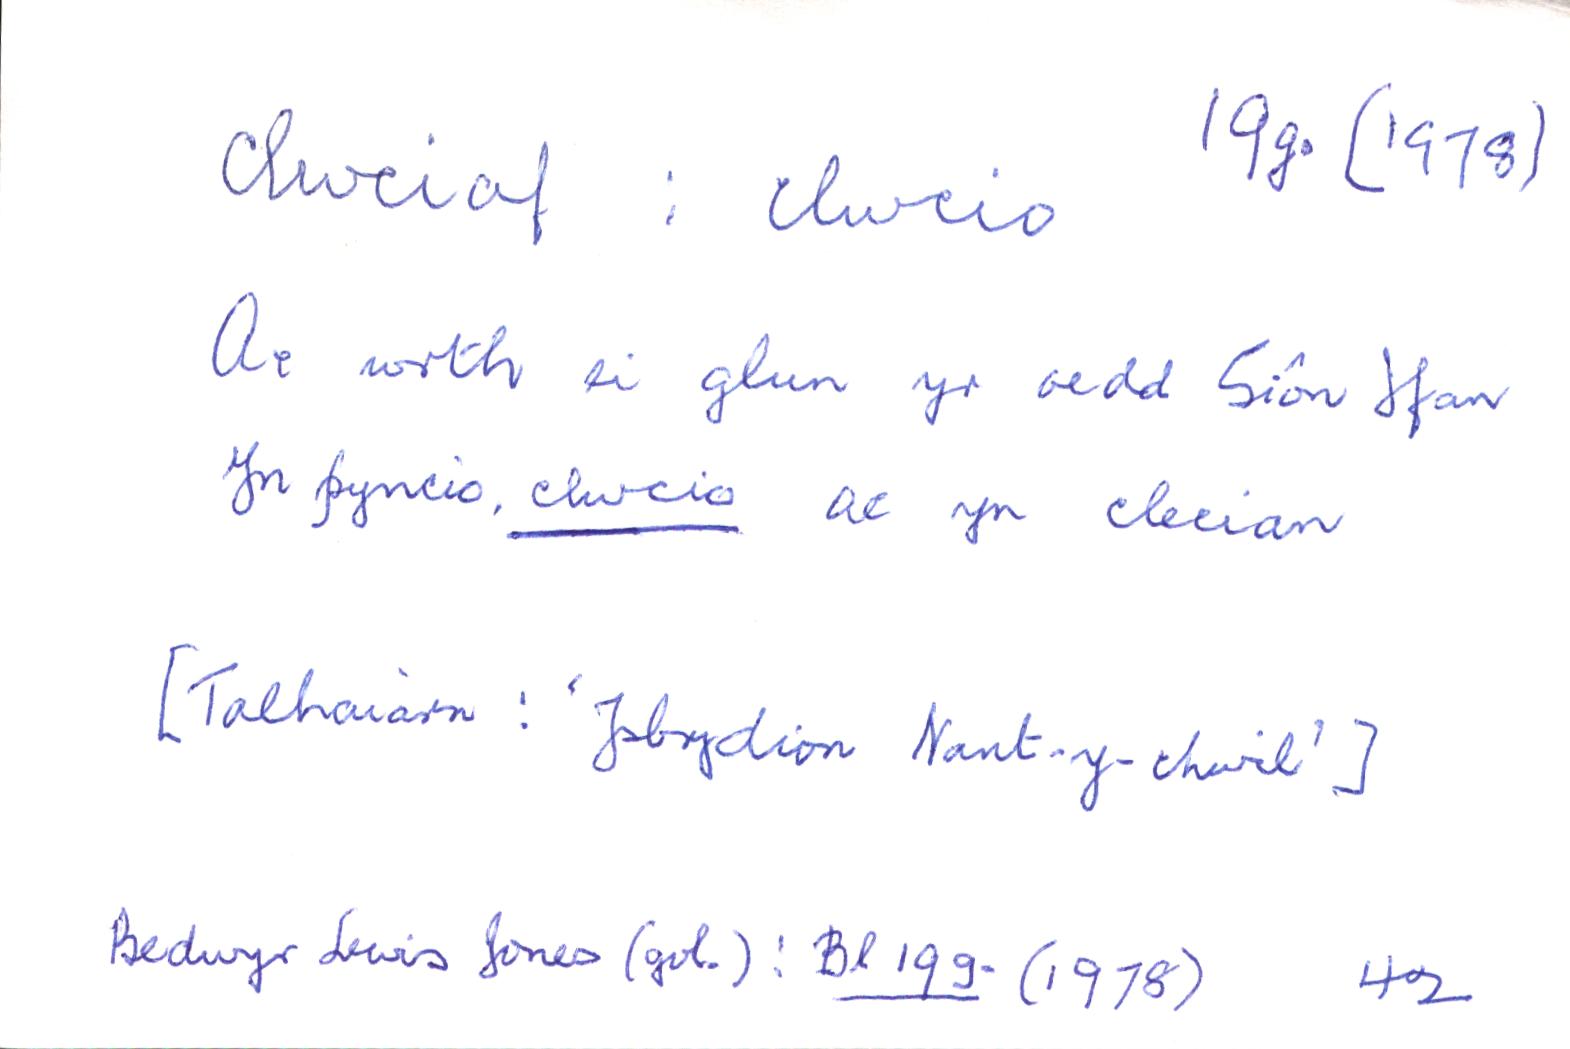 clwciaf : clwcio 19g. (1978)
Ac wrth ei glun yr oedd Siôn Ifan
Yn pyncio, clwcio ac yn clecian
[Talhaiarn : 'Ysbrydion Nant-y-chwil']
Bedwyr Lewis Jones (gol.) : Bl 19g. (1978) 42